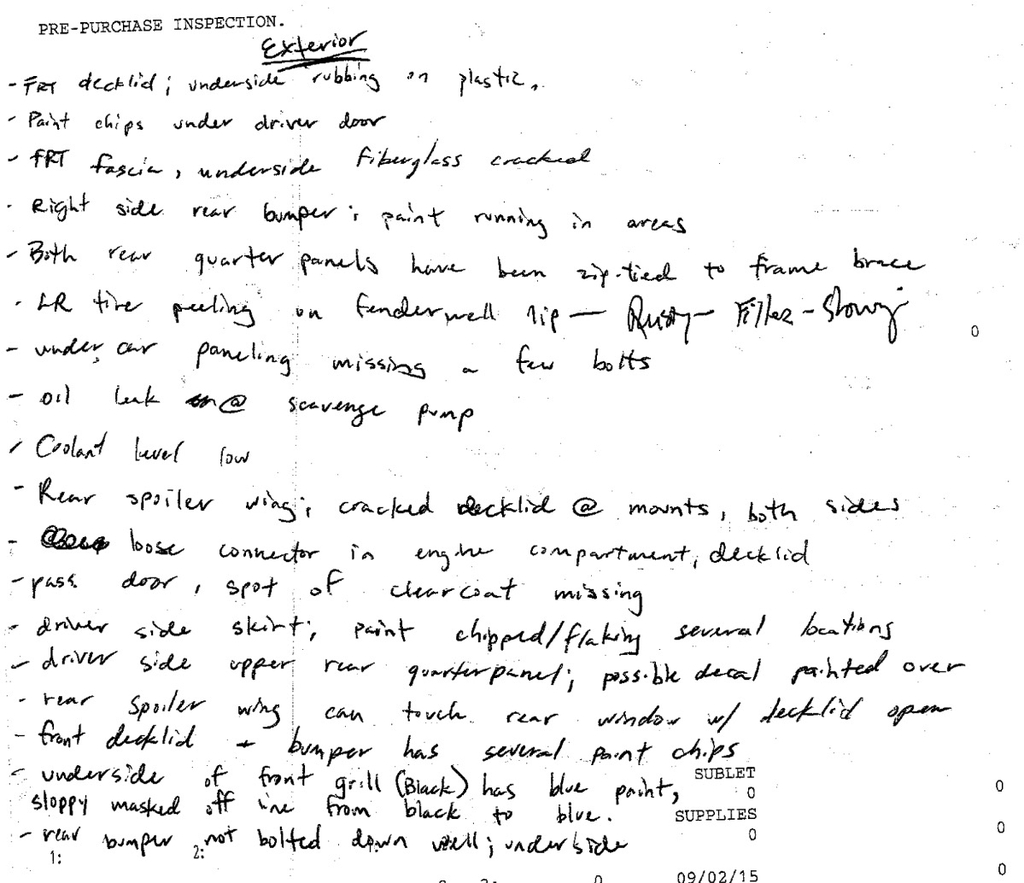 PRE-PURCHASE INSPECTION.
Exterior
- FRT decklid; underside rubbing on plastic.
- Paint chips under driver door
- FRT fascia, underside fiberglass cracked
- Right side rear bumper; paint running in areas
- Both rear quarter panels have been zip-tied to frame brace
- LR tire peeling on fenderwell lip — Rusty - Filler - Showing
- under car paneling missing a few bolts
- oil leak @ scavenge pump
- Coolant level low
- Rear spoiler wing; cracked decklid @ mounts, both sides
- loose connector in engine compartment, decklid
- pass door, spot of clearcoat missing
- driver side skirt; paint chipped/flaking several locations
- driver side upper rear quarterpanel; possible decal painted over
- rear spoiler wing can touch rear window w/ decklid open
- front decklid + bumper has several paint chips
- underside of front grill (Black) has blue paint,
SUBLET
0 0
sloppy masked off line from black to blue.
SUPPLIES
0 0
- rear bumper not bolted down well; underside
1: 2:
0 09/02/15 0
0